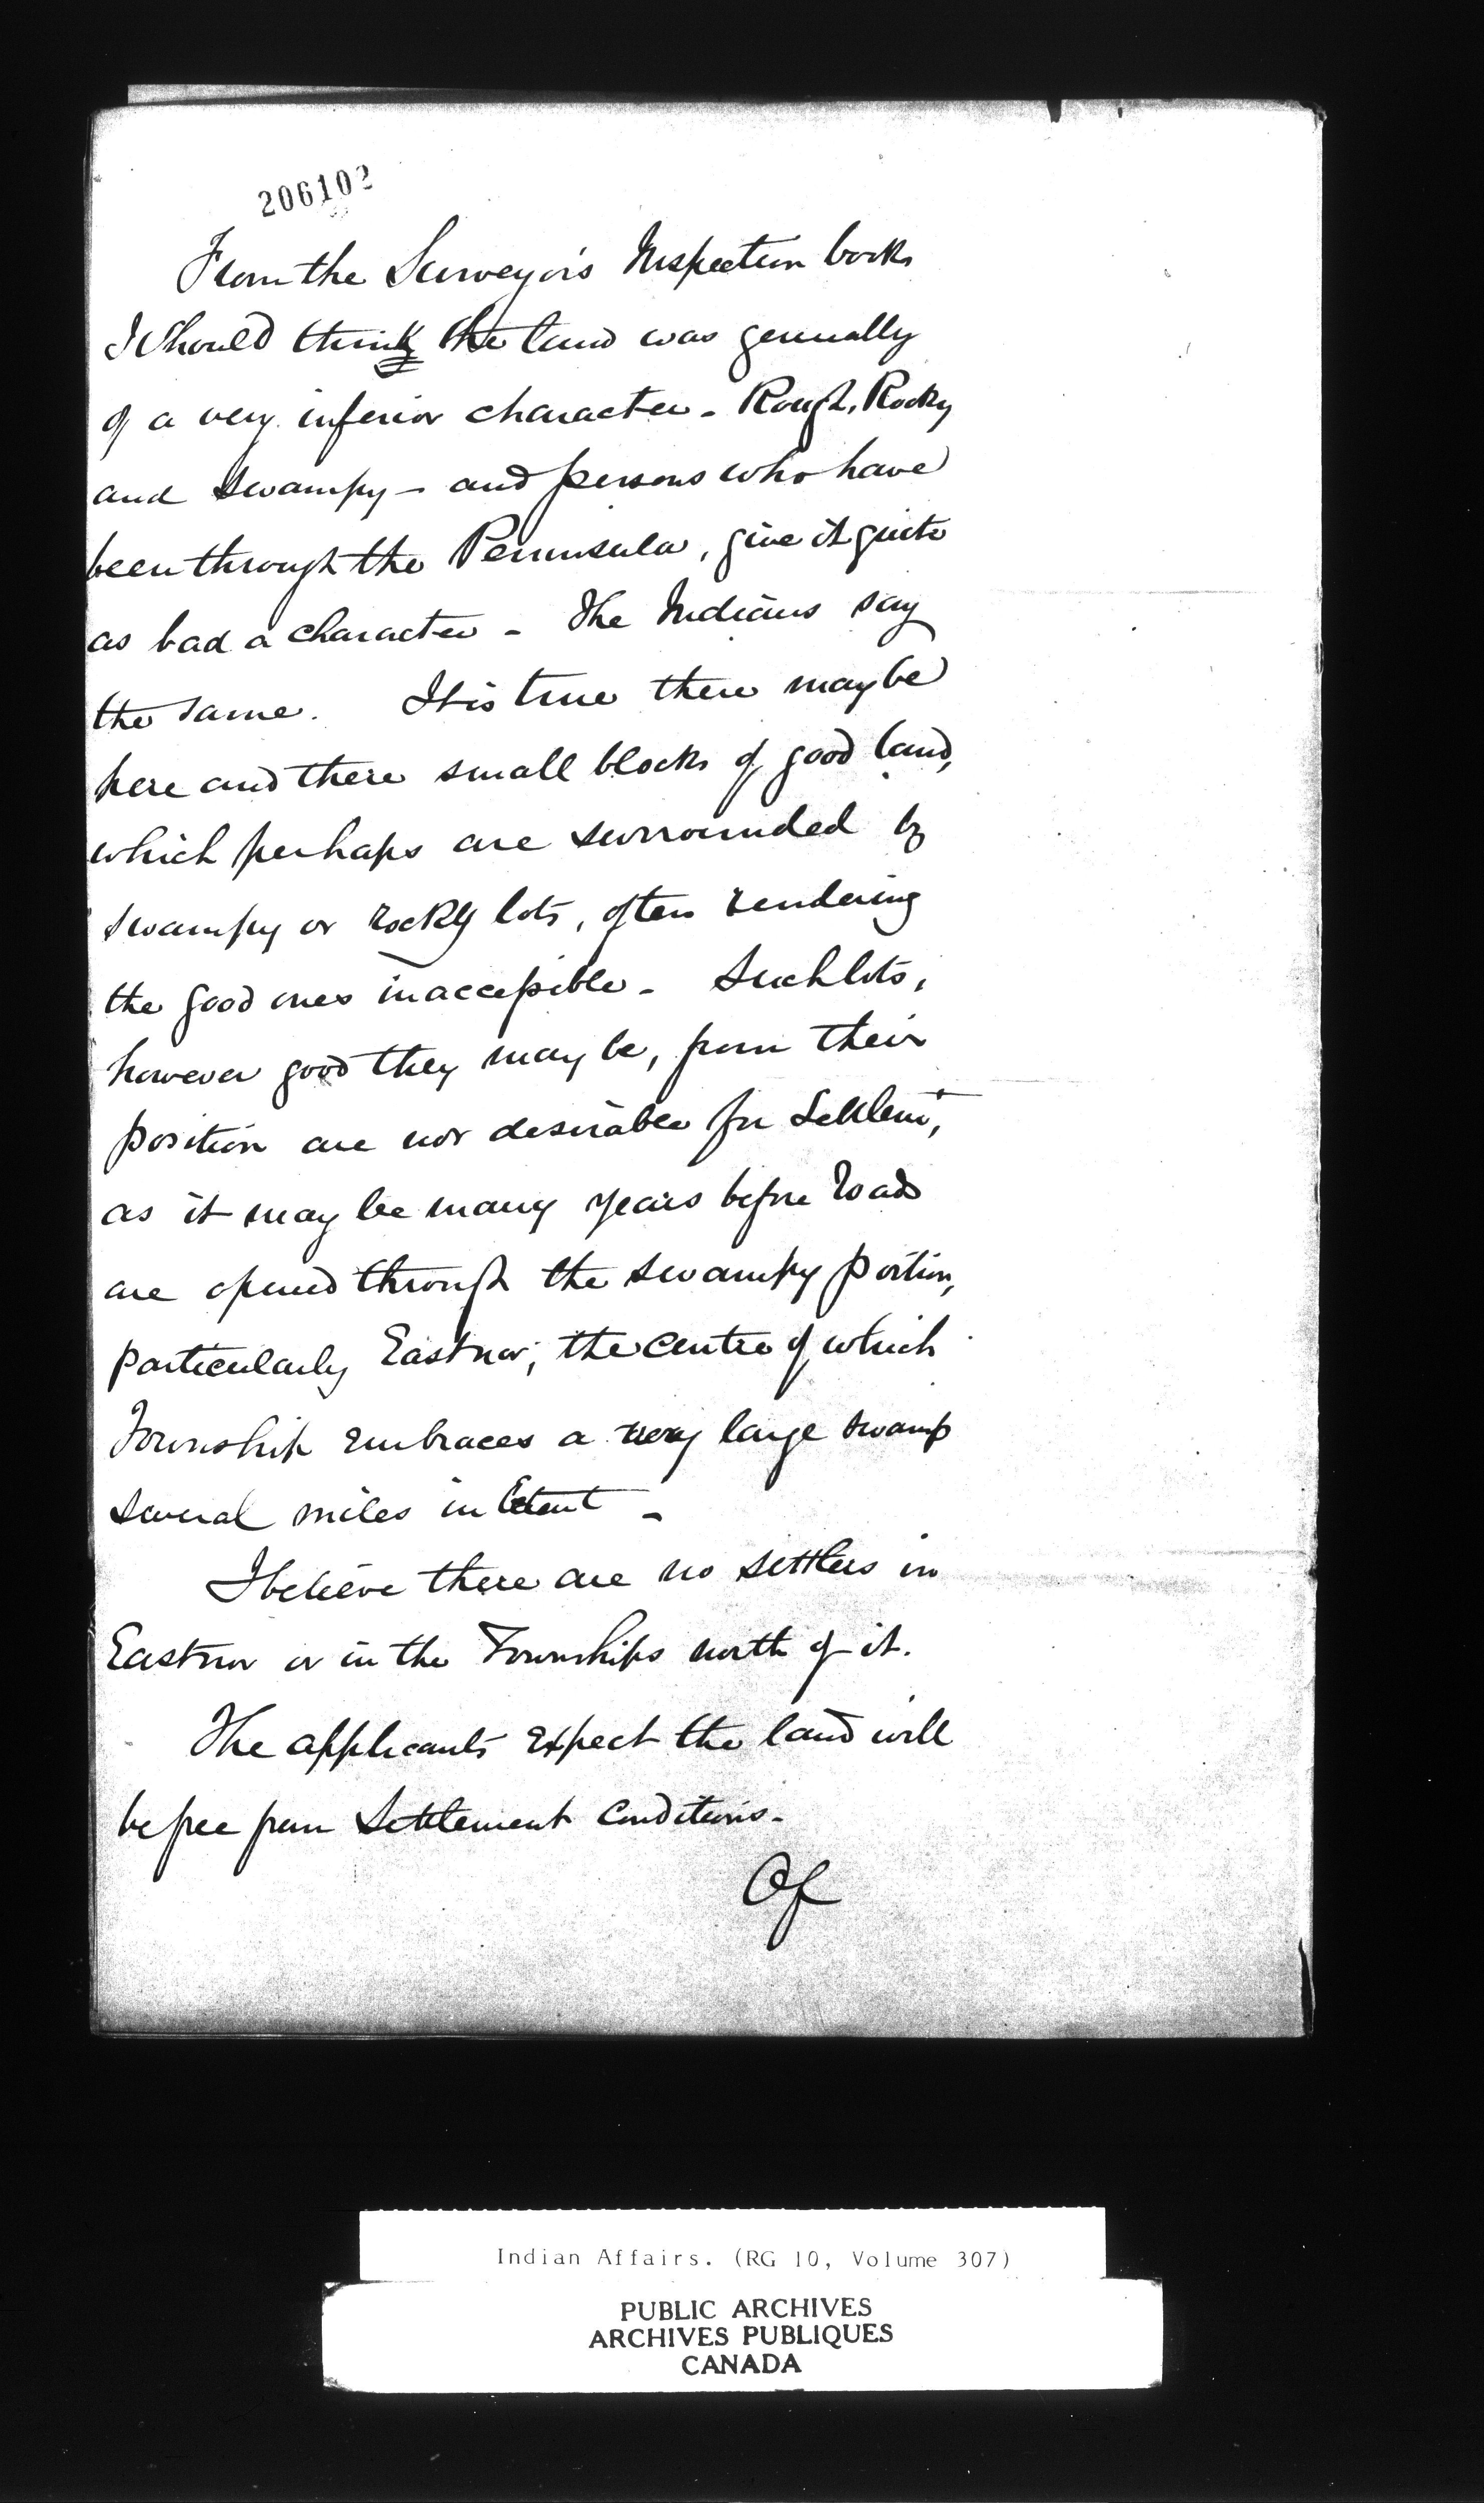 206102
From the Surveyor's Inspection books
I should think the land was generally
of a very inferior character - Rough, Rocky
and swampy - and persons who have
been through the Peninsula, give it quite
as bad a character - The Indians say
the same. It is true there may be
here and there small blocks of good land,
which perhaps are surrounded by
swampy or rocky lots, often rendering
the good ones inaccessible - Such lots,
however good they may be, from their
position are not desirable for Settlemt,
as it may be many years before roads
are opened through the swampy portion,
particularly Eastnor, the centre of which
Township embraces a very large swamp
several miles in Extent -
I believe there are no settlers in
Eastnor or in the Townships north of it.
The applicants expect the land will
be free from Settlement Conditions -
Of
Indian Affairs. (RG 10, Volume 307)
PUBLIC ARCHIVES
ARCHIVES PUBLIQUES
CANADA